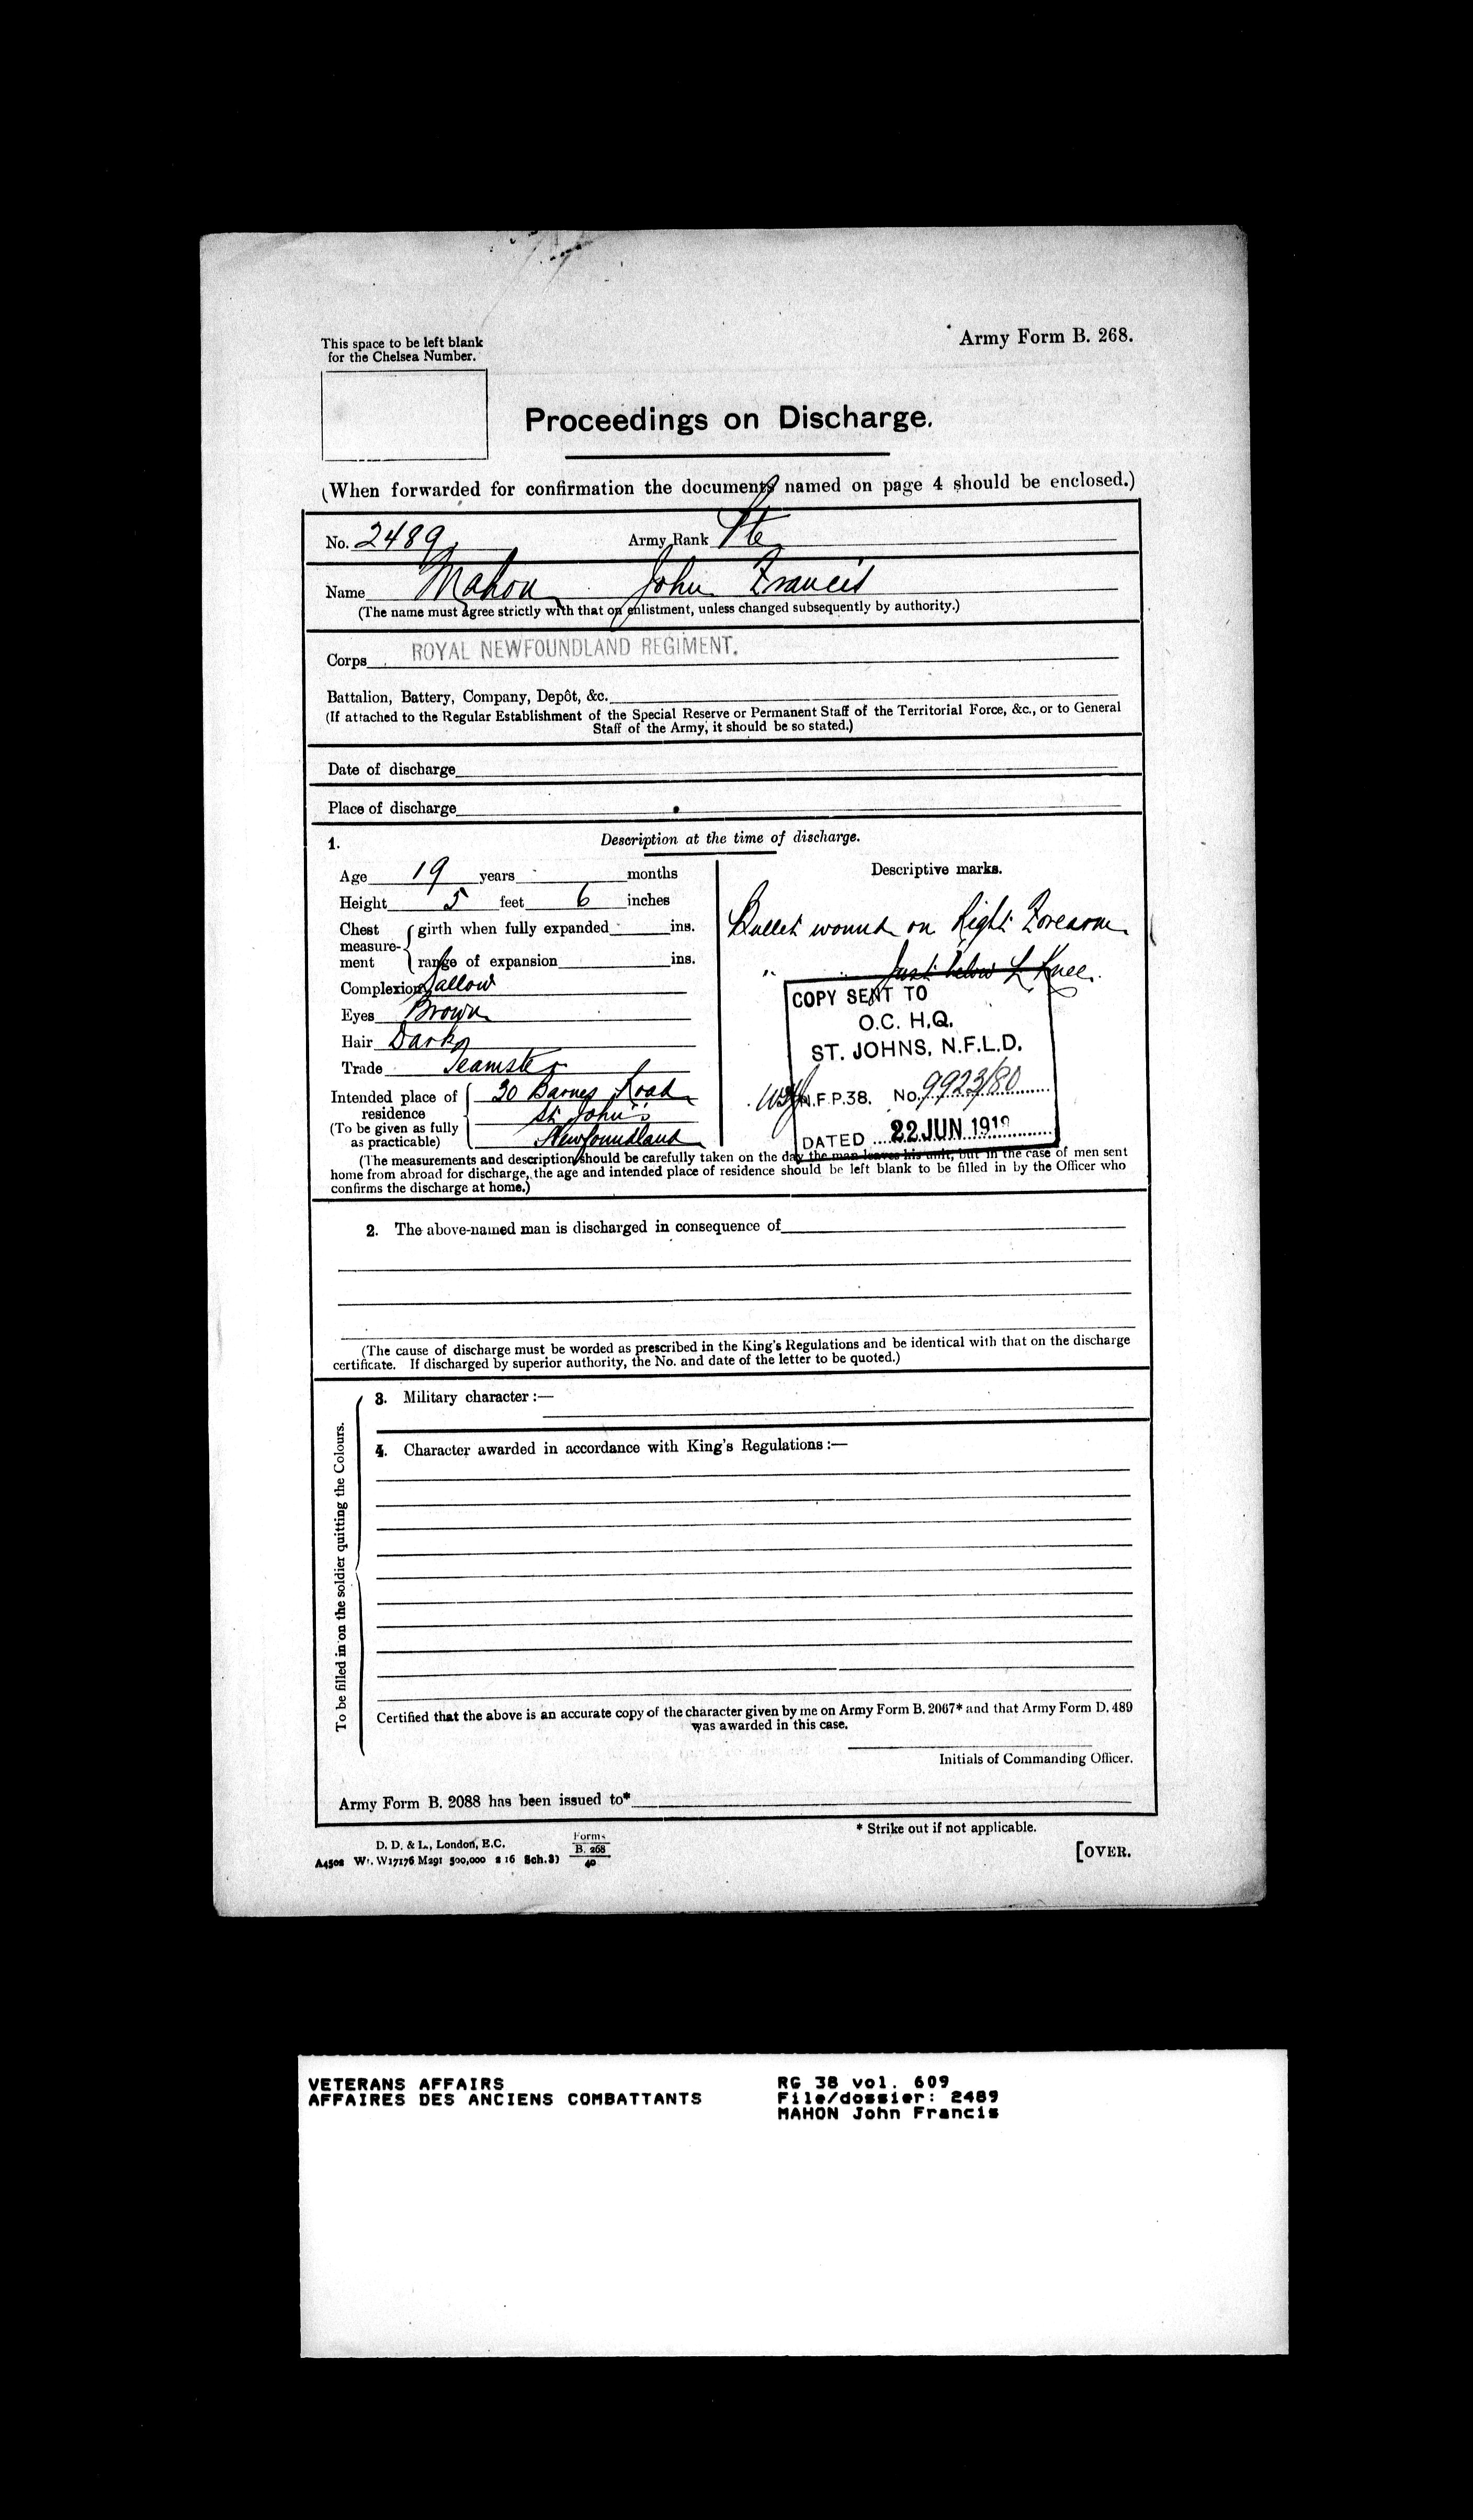 This space to be left blank
for the Chelsea Number.
Army Form B. 268.
Proceedings on Discharge.
(When forwarded for confirmation the documents named on page 4 should be enclosed.)
No. 2489. Army Rank Pte
Name Mahon John Francis
(The name must agree strictly with that on enlistment, unless changed subsequently by authority.)
Corps ROYAL NEWFOUNDLAND REGIMENT.
Battalion, Battery, Company, Depôt, &c.
(If attached to the Regular Establishment of the Special Reserve or Permanent Staff of the Territorial Force, &c., or to General
Staff of the Army, it should be so stated.)
Date of discharge
Place of discharge
1. Description at the time of discharge.
Age 19 years months
Height 5 feet 6 inches
Chest measurement
girth when fully expanded ins.
range of expansion ins.
Complexion Sallow
Eyes Brown
Hair Dark
Trade Teamster
Intended place of
residence
(To be given as fully
as practicable)
30 Barnes Road
St John's
Newfoundland
Descriptive marks.
Bullet wound on Right Forearm
" " Just below L Knee.
COPY SENT TO
O.C. H.Q.
ST. JOHNS, N.F.L.D.
N.F.P.38. No. 9923/80
DATED 22 JUN 1919
(The measurements and description should be carefully taken on the day the man leaves his unit, but in the case of men sent
home from abroad for discharge, the age and intended place of residence should be left blank to be filled in by the Officer who
confirms the discharge at home.)
2. The above-named man is discharged in consequence of
(The cause of discharge must be worded as prescribed in the King's Regulations and be identical with that on the discharge
certificate. If discharged by superior authority, the No. and date of the letter to be quoted.)
To be filled in on the soldier quitting the Colours.
3. Military character :—
4. Character awarded in accordance with King's Regulations :—
Certified that the above is an accurate copy of the character given by me on Army Form B. 2067* and that Army Form D. 489
was awarded in this case.
Initials of Commanding Officer.
Army Form B. 2088 has been issued to*
* Strike out if not applicable.
D. D. & L., London, E.C.
A4502 Wt. W17176 M291 500,000 2 16 Sch.3)
Forms
B. 268
40
[OVER.
VETERANS AFFAIRS
AFFAIRES DES ANCIENS COMBATTANTS
RG 38 vol. 609
File/dossier: 2489
MAHON John Francis